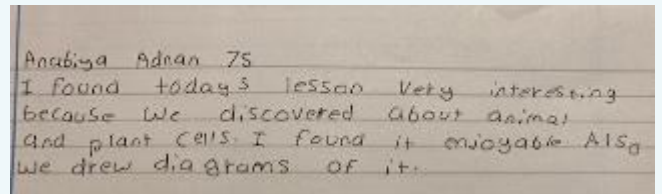 Anabiya Adnan 7S
I found today's lesson very interesting
because we discovered about animal
and plant cells. I found it enjoyable Also
we drew diagrams of it.